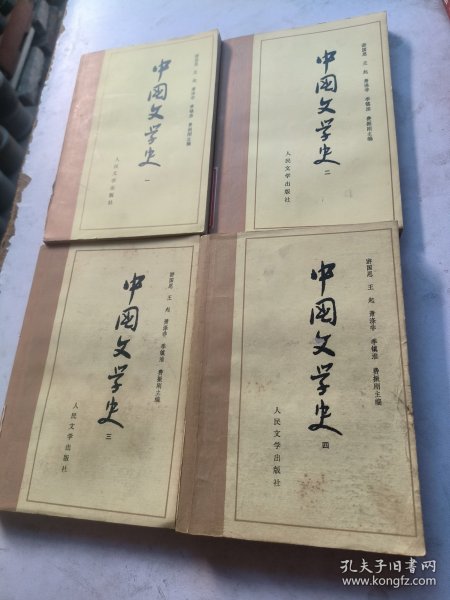 中国文学史
一
游国恩 王起 萧涤非 季镇淮 费振刚主编
人民文学出版社
中国文学史
二
游国恩 王起 萧涤非 季镇淮 费振刚主编
人民文学出版社
中国文学史
三
游国恩 王起 萧涤非 季镇淮 费振刚主编
人民文学出版社
中国文学史
四
游国恩 王起 萧涤非 季镇淮 费振刚主编
人民文学出版社
孔夫子旧书网
www.kongfz.com